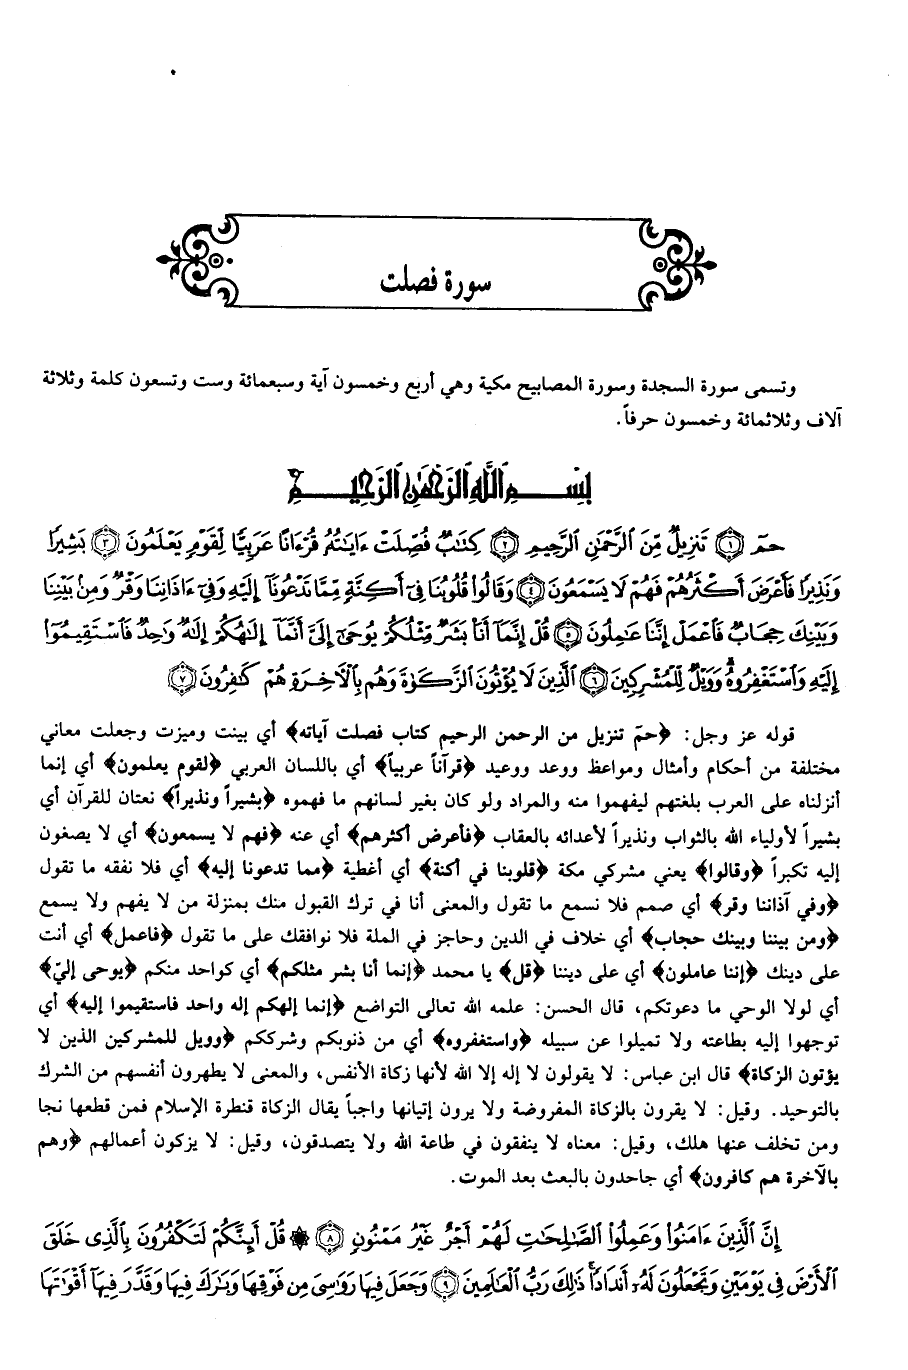 سورة فصلت
وتسمى سورة السجدة وسورة المصابيح مكية وهي أربع وخمسون آية وسبعمائة وست وتسعون كلمة وثلاثة
آلاف وثلاثمائة وخمسون حرفاً.
بِسْمِ اللَّهِ الرَّحْمَٰنِ الرَّحِيمِ
حمٓ ﴿١﴾ تَنزِيلٌ مِّنَ ٱلرَّحْمَٰنِ ٱلرَّحِيمِ ﴿٢﴾ كِتَٰبٌ فُصِّلَتْ ءَايَٰتُهُۥ قُرْءَانًا عَرَبِيًّا لِّقَوْمٍ يَعْلَمُونَ ﴿٣﴾ بَشِيرًا
وَنَذِيرًا فَأَعْرَضَ أَكْثَرُهُمْ فَهُمْ لَا يَسْمَعُونَ ﴿٤﴾ وَقَالُوا۟ قُلُوبُنَا فِىٓ أَكِنَّةٍ مِّمَّا تَدْعُونَآ إِلَيْهِ وَفِىٓ ءَاذَانِنَا وَقْرٌ وَمِنۢ بَيْنِنَا
وَبَيْنِكَ حِجَابٌ فَٱعْمَلْ إِنَّنَا عَٰمِلُونَ ﴿٥﴾ قُلْ إِنَّمَآ أَنَا۠ بَشَرٌ مِّثْلُكُمْ يُوحَىٰٓ إِلَىَّ أَنَّمَآ إِلَٰهُكُمْ إِلَٰهٌ وَٰحِدٌ فَٱسْتَقِيمُوٓا۟
إِلَيْهِ وَٱسْتَغْفِرُوهُ ۗ وَوَيْلٌ لِّلْمُشْرِكِينَ ﴿٦﴾ ٱلَّذِينَ لَا يُؤْتُونَ ٱلزَّكَوٰةَ وَهُم بِٱلْءَاخِرَةِ هُمْ كَٰفِرُونَ ﴿٧﴾
قوله عز وجل: ﴿حمّ تنزيل من الرحمن الرحيم كتاب فصلت آياته﴾ أي بينت وميزت وجعلت معاني
مختلفة من أحكام وأمثال ومواعظ ووعد ووعيد ﴿قرآناً عربياً﴾ أي باللسان العربي ﴿لقوم يعلمون﴾ أي إنما
أنزلناه على العرب بلغتهم ليفهموا منه والمراد ولو كان بغير لسانهم ما فهموه ﴿بشيراً ونذيراً﴾ نعتان للقرآن أي
بشيراً لأولياء الله بالثواب ونذيراً لأعدائه بالعقاب ﴿فأعرض أكثرهم﴾ أي عنه ﴿فهم لا يسمعون﴾ أي لا يصغون
إليه تكبراً ﴿وقالوا﴾ يعني مشركي مكة ﴿قلوبنا في أكنة﴾ أي أغطية ﴿مما تدعونا إليه﴾ أي فلا نفقه ما تقول
﴿وفي آذاننا وقر﴾ أي صمم فلا نسمع ما تقول والمعنى أنا في ترك القبول منك بمنزلة من لا يفهم ولا يسمع
﴿ومن بيننا وبينك حجاب﴾ أي خلاف في الدين وحاجز في الملة فلا نوافقك على ما تقول ﴿فاعمل﴾ أي أنت
على دينك ﴿إننا عاملون﴾ أي على ديننا ﴿قل﴾ يا محمد ﴿إنما أنا بشر مثلكم﴾ أي كواحد منكم ﴿يوحى إليّ﴾
أي لولا الوحي ما دعوتكم، قال الحسن: علمه الله تعالى التواضع ﴿إنما إلهكم إله واحد فاستقيموا إليه﴾ أي
توجهوا إليه بطاعته ولا تميلوا عن سبيله ﴿واستغفروه﴾ أي من ذنوبكم وشرككم ﴿وويل للمشركين الذين لا
يؤتون الزكاة﴾ قال ابن عباس: لا يقولون لا إله إلا الله لأنها زكاة الأنفس، والمعنى لا يطهرون أنفسهم من الشرك
بالتوحيد. وقيل: لا يقرون بالزكاة المفروضة ولا يرون إتيانها واجباً يقال الزكاة قنطرة الإسلام فمن قطعها نجا
ومن تخلف عنها هلك، وقيل: معناه لا ينفقون في طاعة الله ولا يتصدقون، وقيل: لا يزكون أعمالهم ﴿وهم
بالآخرة هم كافرون﴾ أي جاحدون بالبعث بعد الموت.
إِنَّ ٱلَّذِينَ ءَامَنُوا۟ وَعَمِلُوا۟ ٱلصَّٰلِحَٰتِ لَهُمْ أَجْرٌ غَيْرُ مَمْنُونٍ ﴿٨﴾ ۞ قُلْ أَئِنَّكُمْ لَتَكْفُرُونَ بِٱلَّذِى خَلَقَ
ٱلْأَرْضَ فِى يَوْمَيْنِ وَتَجْعَلُونَ لَهُۥٓ أَندَادًا ۚ ذَٰلِكَ رَبُّ ٱلْعَٰلَمِينَ ﴿٩﴾ وَجَعَلَ فِيهَا رَوَٰسِىَ مِن فَوْقِهَا وَبَٰرَكَ فِيهَا وَقَدَّرَ فِيهَآ أَقْوَٰتَهَا